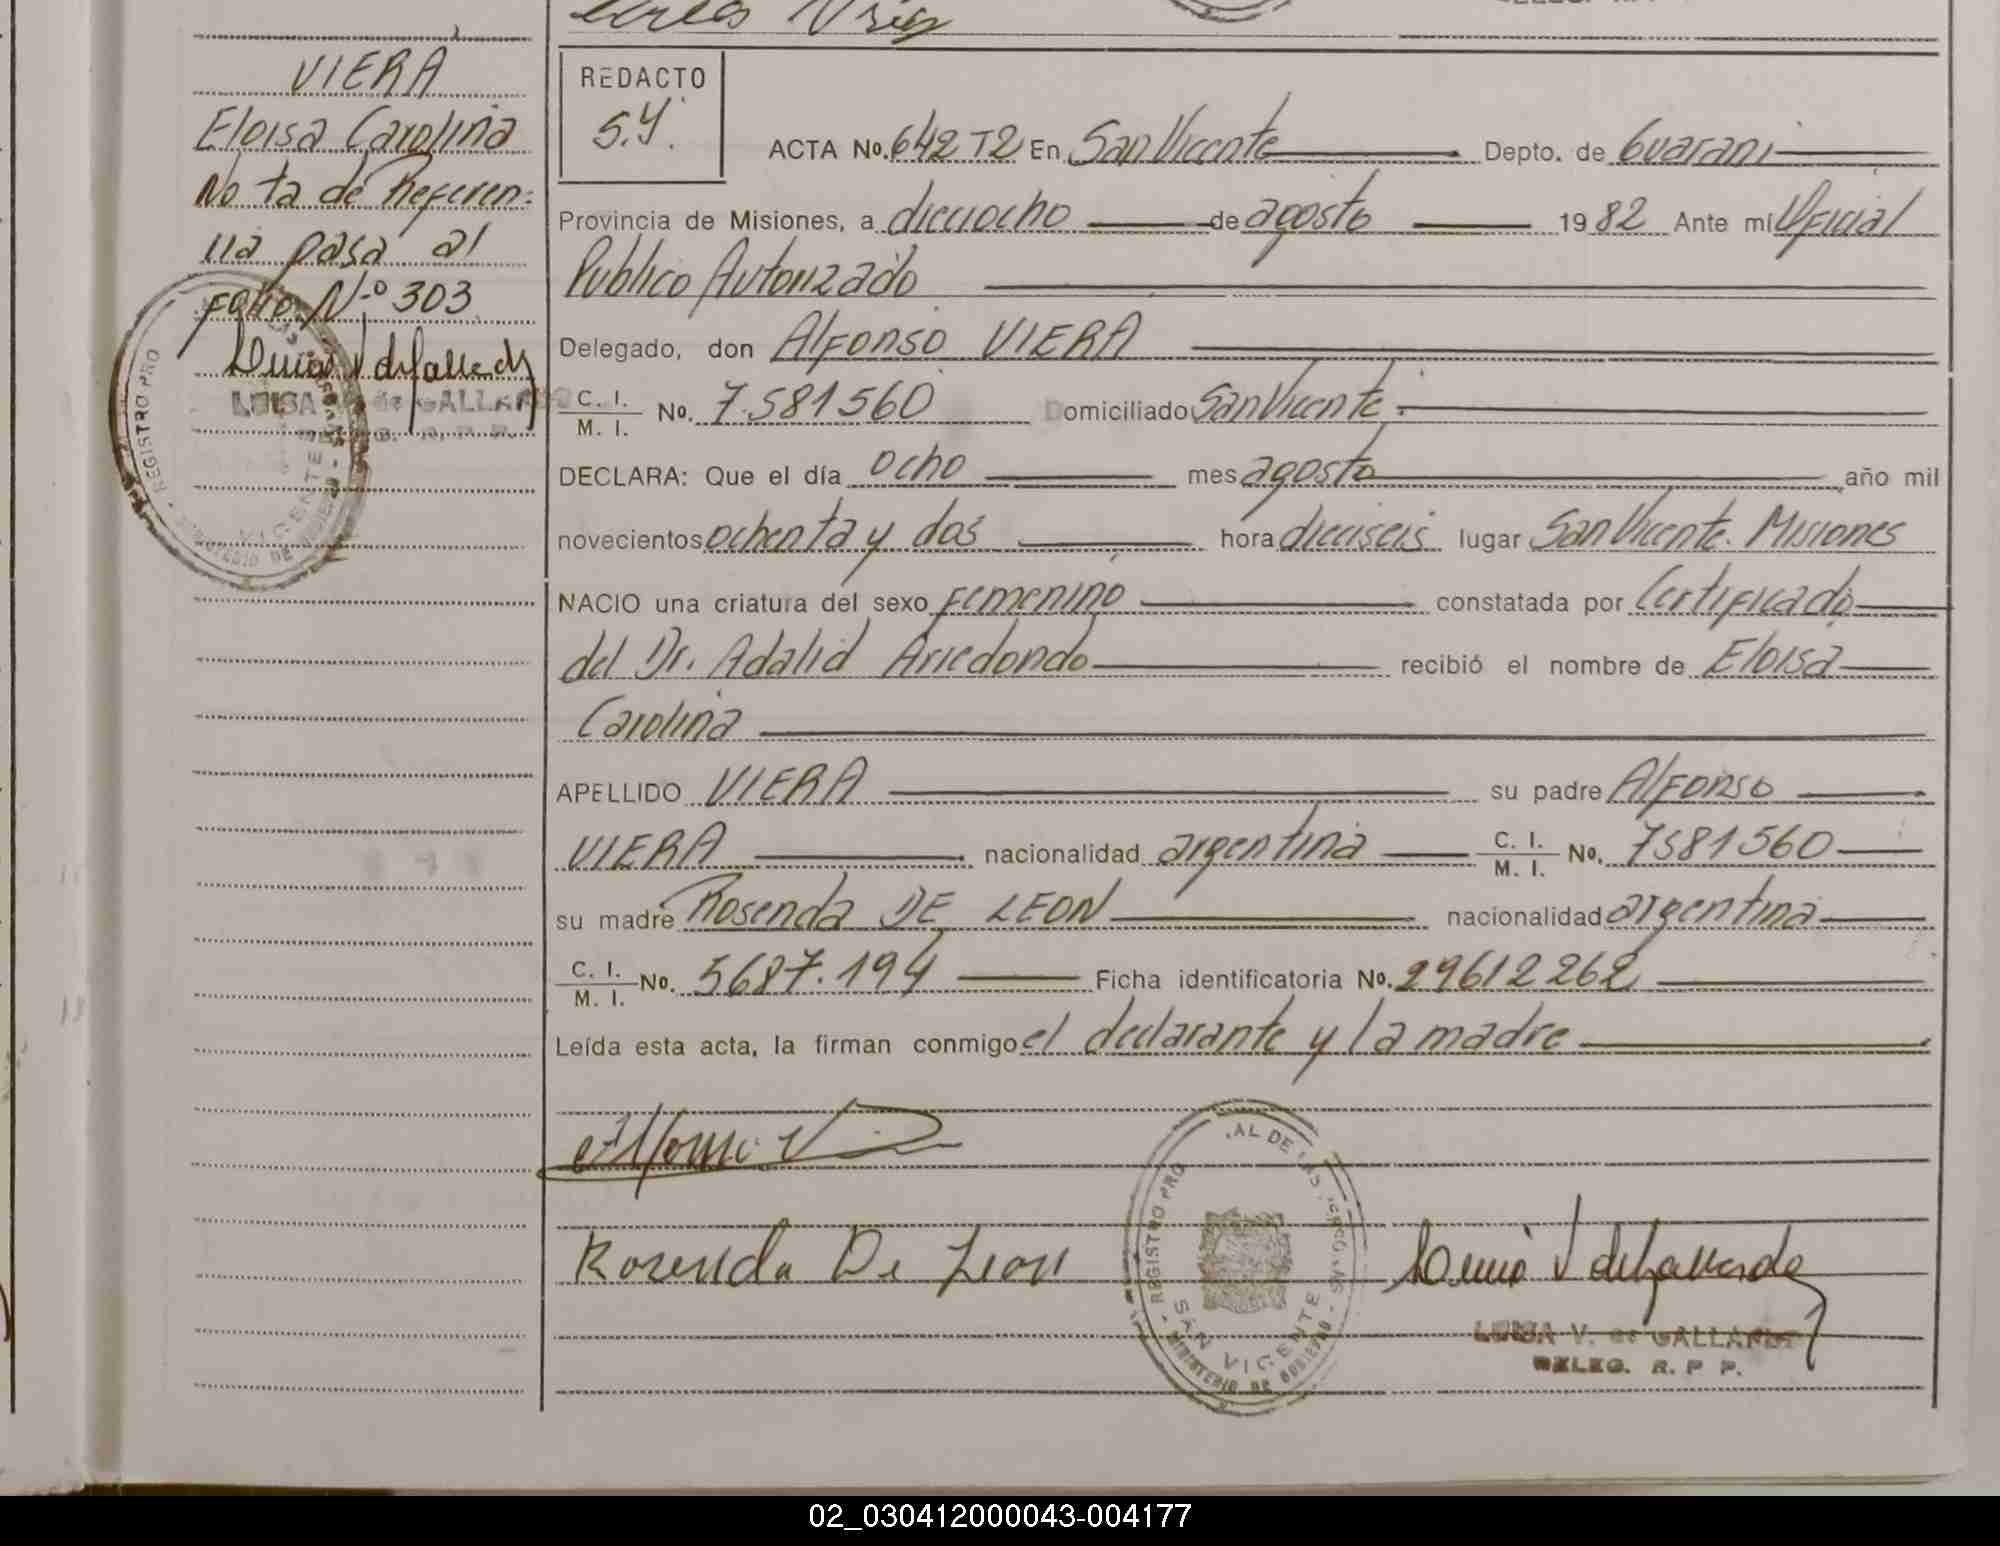 VIERA
Eloisa Carolina
Nota de Referen-
cia pasa al
Folio N.º 303
LUISA V. de GALLARDO
DELEG. R. P. P.
REGISTRO PRO
SAN VICENTE
MINISTERIO DE GOBIERNO
REDACTO
S.Y.
ACTA No. 642 T2 En San Vicente Depto. de Guarani
Provincia de Misiones, a dieciocho de agosto 1982 Ante mí Oficial
Publico Autorizado
Delegado, don Alfonso VIERA
C. I. / M. I. No. 7.581560 Domiciliado San Vicente.
DECLARA: Que el día ocho mes agosto año mil
novecientos ochenta y dos hora dieciseis lugar San Vicente. Misiones
NACIO una criatura del sexo Femenino constatada por Certificado
del Dr. Adalid Arredondo recibió el nombre de Eloisa
Carolina
APELLIDO VIERA su padre Alfonso
VIERA nacionalidad argentina C. I. / M. I. No. 7581560
su madre Rosenda DE LEON nacionalidad argentina
C. I. / M. I. No. 5687.194 Ficha identificatoria No. 29612262
Leída esta acta, la firman conmigo el declarante y la madre
Alfonso V
Rosenda De Leon
REGISTRO PRO AL DE LAS PERSONAS
SAN VICENTE
MINISTERIO DE GOBIERNO
Luisa V de Gallardo
LUISA V. de GALLARDO
DELEG. R. P P.
02_030412000043-004177